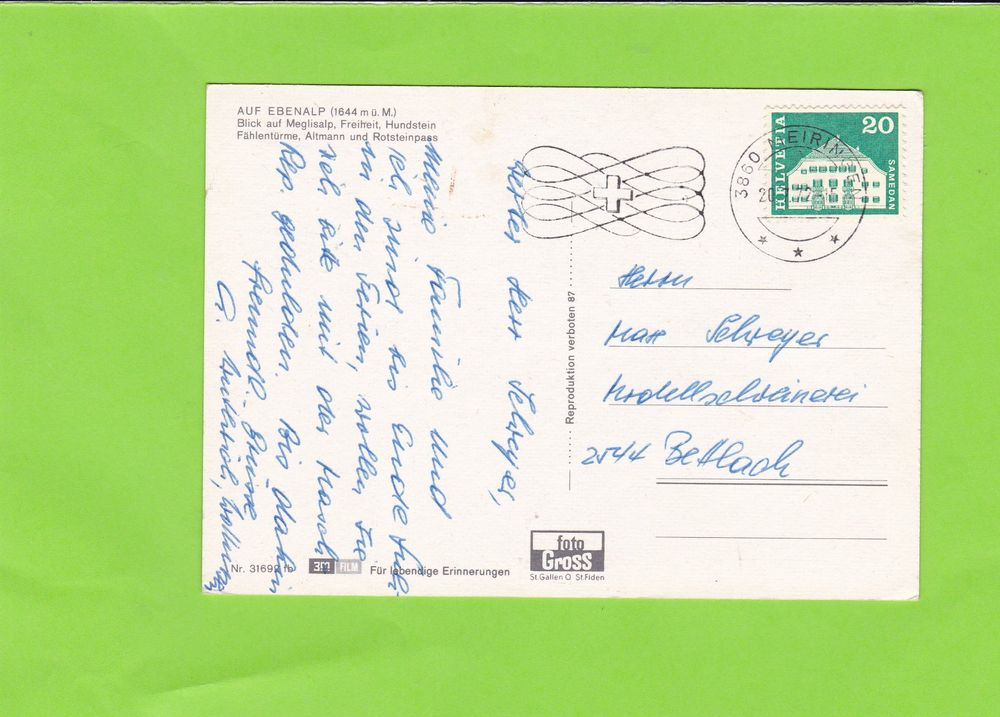 AUF EBENALP (1644 m ü. M.)
Blick auf Meglisalp, Freiheit, Hundstein
Fählentürme, Altmann und Rotsteinpass
Werter Herr Schreyer,
Meine Familie und
ich sind bis Ende
in den Ferien, wollen Sie
sich bitte mit der Masch.
Rep. gedulden. Bis dahin
freundl. Grüsse
G.
Nr. 31692 fb
3M FILM
Für lebendige Erinnerungen
Reproduktion verboten 87
foto
Gross
St.Gallen O St.Fiden
HELVETIA
20
SAMEDAN
3860 MEIRINGEN
Herrn
Max Schreyer
Modellschreinerei
2544 Bettlach